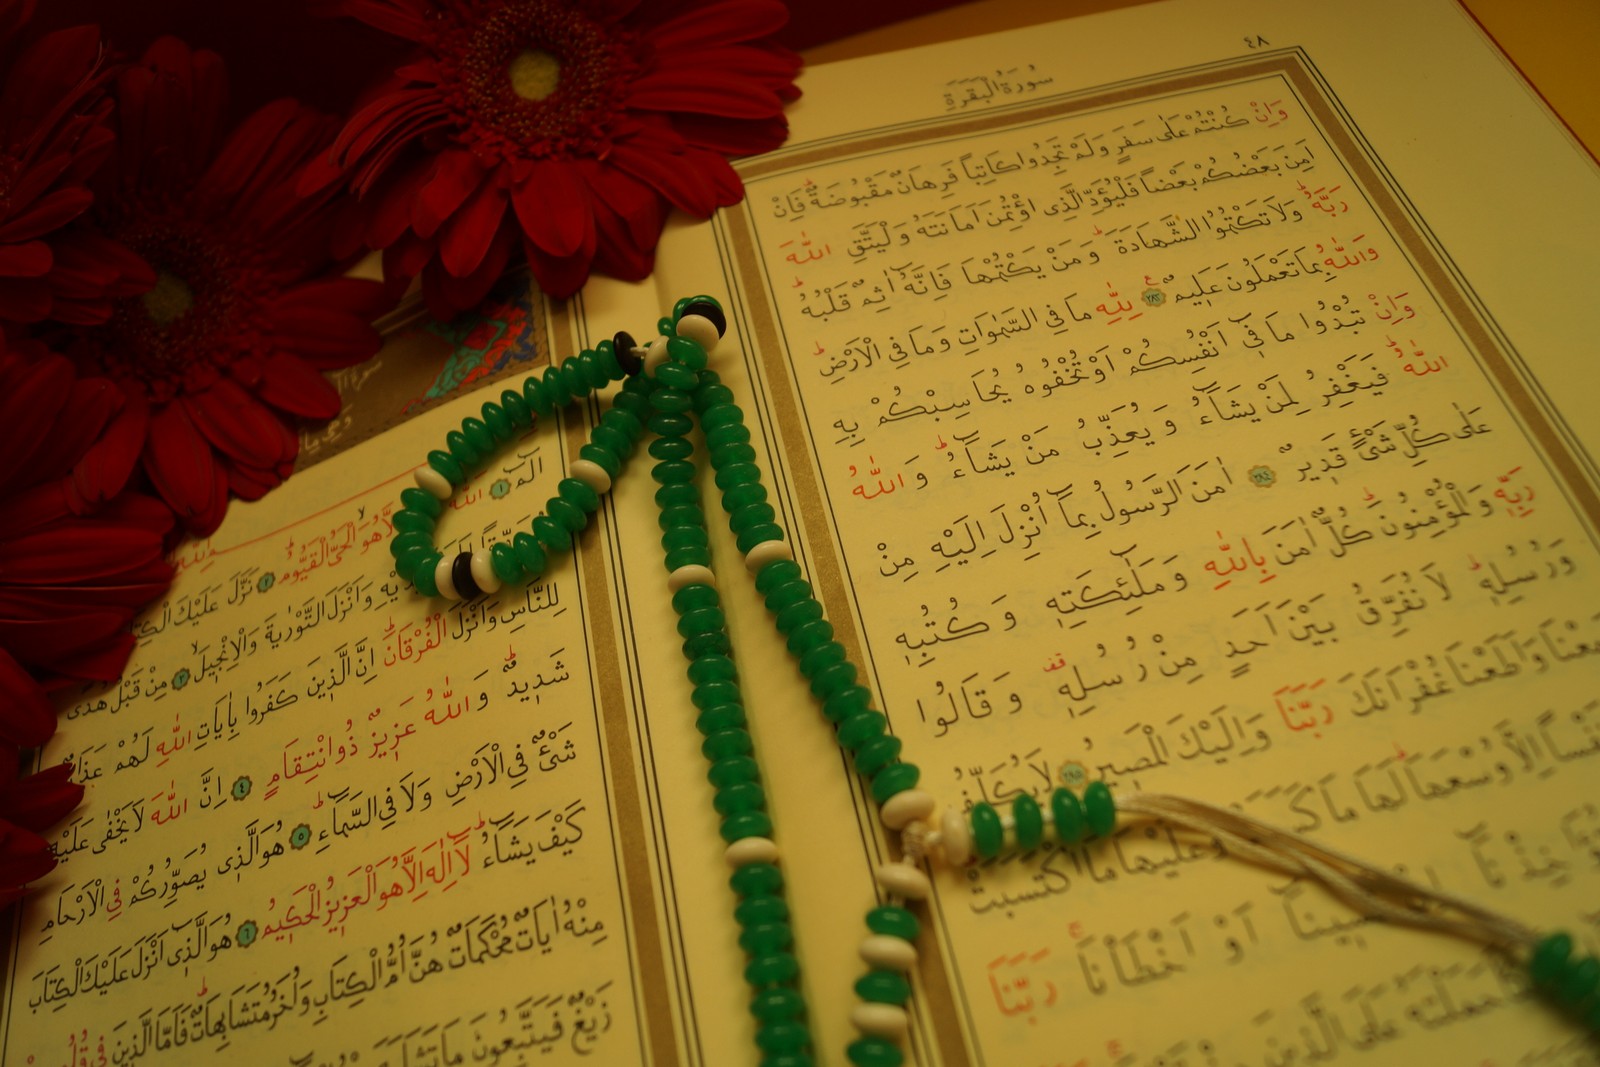 ٤٨
سُورَةُ الْبَقَرَةِ
وَاِنْ كُنْتُمْ عَلٰى سَفَرٍ وَلَمْ تَجِدُوا كَاتِباً فَرِهَانٌ مَقْبُوضَةٌ فَاِنْ
اَمِنَ بَعْضُكُمْ بَعْضاً فَلْيُؤَدِّ الَّذِى اؤْتُمِنَ اَمَانَتَهُ وَلْيَتَّقِ اللّٰهَ
رَبَّهُ وَلَا تَكْتُمُوا الشَّهَادَةَ وَمَنْ يَكْتُمْهَا فَاِنَّهُٓ اٰثِمٌ قَلْبُهُ
وَاللّٰهُ بِمَا تَعْمَلُونَ عَلِيمٌ ٢٨٣ لِلّٰهِ مَا فِي السَّمٰوَاتِ وَمَا فِي الْاَرْضِ
وَاِنْ تُبْدُوا مَا فِٓي اَنْفُسِكُمْ اَوْ تُخْفُوهُ يُحَاسِبْكُمْ بِهِ
اللّٰهُ فَيَغْفِرُ لِمَنْ يَشَٓاءُ وَيُعَذِّبُ مَنْ يَشَٓاءُ وَاللّٰهُ
عَلٰى كُلِّ شَيْءٍ قَدِيرٌ ٢٨٤ اٰمَنَ الرَّسُولُ بِمَٓا اُنْزِلَ اِلَيْهِ مِنْ
رَبِّهِ وَالْمُؤْمِنُونَ كُلٌّ اٰمَنَ بِاللّٰهِ وَمَلٰٓئِكَتِهِ وَكُتُبِهِ
وَرُسُلِهِ لَا نُفَرِّقُ بَيْنَ اَحَدٍ مِنْ رُسُلِهِ وَقَالُوا
سَمِعْنَا وَاَطَعْنَا غُفْرَانَكَ رَبَّنَا وَاِلَيْكَ الْمَصِيرُ ٢٨٥ لَا يُكَلِّفُ
نَفْساً اِلَّا وُسْعَهَا لَهَا مَا وَعَلَيْهَا مَا اكْتَسَبَتْ
اَوْ اَخْطَأْنَا رَبَّنَا
حَمَلْتَهُ عَلَى الَّذِينَ
الٓمٓ ١ اَللّٰهُ
هُوَ الْحَيُّ الْقَيُّومُ ٢ نَزَّلَ عَلَيْكَ
وَاَنْزَلَ التَّوْرٰيةَ وَالْاِنْجِيلَ ٣ مِنْ قَبْلُ هُدًى
لِلنَّاسِ وَاَنْزَلَ الْفُرْقَانَ اِنَّ الَّذِينَ كَفَرُوا بِاٰيَاتِ اللّٰهِ لَهُمْ عَذَابٌ
شَدِيدٌ وَاللّٰهُ عَزِيزٌ ذُو انْتِقَامٍ ٤ اِنَّ اللّٰهَ لَا يَخْفٰى عَلَيْهِ
شَيْءٌ فِي الْاَرْضِ وَلَا فِي السَّمَٓاءِ ٥ هُوَ الَّذِى يُصَوِّرُكُمْ فِي الْاَرْحَامِ
كَيْفَ يَشَٓاءُ لَٓا اِلٰهَ اِلَّا هُوَ الْعَزِيزُ الْحَكِيمُ ٦ هُوَ الَّذِٓى اَنْزَلَ عَلَيْكَ الْكِتَابَ
مِنْهُ اٰيَاتٌ مُحْكَمَاتٌ هُنَّ اُمُّ الْكِتَابِ وَاُخَرُ مُتَشَابِهَاتٌ فَاَمَّا الَّذِينَ فِي
زَيْغٌ فَيَتَّبِعُونَ مَا